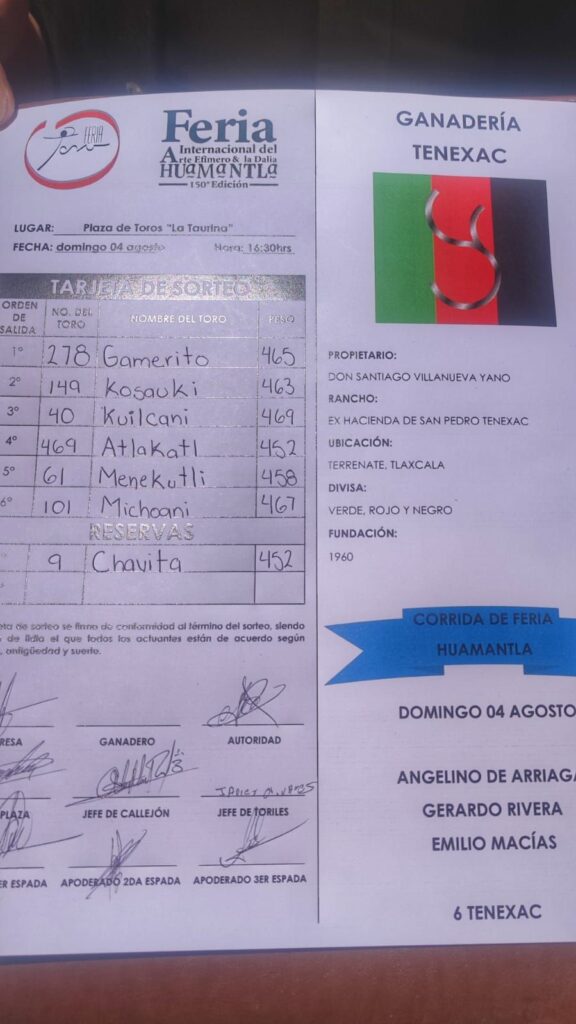 FERIA
Toro
Feria
Internacional del
Arte Efímero & la Dalia
HUaMaNTLa
150ª Edición
LUGAR: Plaza de Toros "La Taurina"
FECHA: domingo 04 agosto Hora: 16:30hrs
TARJETA DE SORTEO
ORDEN DE SALIDA NO. DEL TORO NOMBRE DEL TORO PESO
1º 278 Gamerito 465
2º 149 Kosauki 463
3º 40 Kuilcani 469
4º 469 Atlakatl 452
5º 61 Menekutli 458
6º 101 Michoani 467
RESERVAS
9 Chavita 452
de sorteo se firma de conformidad al término del sorteo, siendo
de lidia el que todos los actuantes están de acuerdo según
antigüedad y suerte.
GANADERO AUTORIDAD
PLAZA JEFE DE CALLEJÓN JEFE DE TORILES
ESPADA APODERADO 2DA ESPADA APODERADO 3ER ESPADA
GANADERÍA
TENEXAC
PROPIETARIO:
DON SANTIAGO VILLANUEVA YANO
RANCHO:
EX HACIENDA DE SAN PEDRO TENEXAC
UBICACIÓN:
TERRENATE, TLAXCALA
DIVISA:
VERDE, ROJO Y NEGRO
FUNDACIÓN:
1960
CORRIDA DE FERIA
HUAMANTLA
DOMINGO 04 AGOSTO
ANGELINO DE ARRIAGA
GERARDO RIVERA
EMILIO MACÍAS
6 TENEXAC